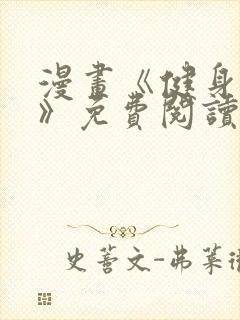 漫畫《健身
》免費閱讀
史蒂文-弗萊